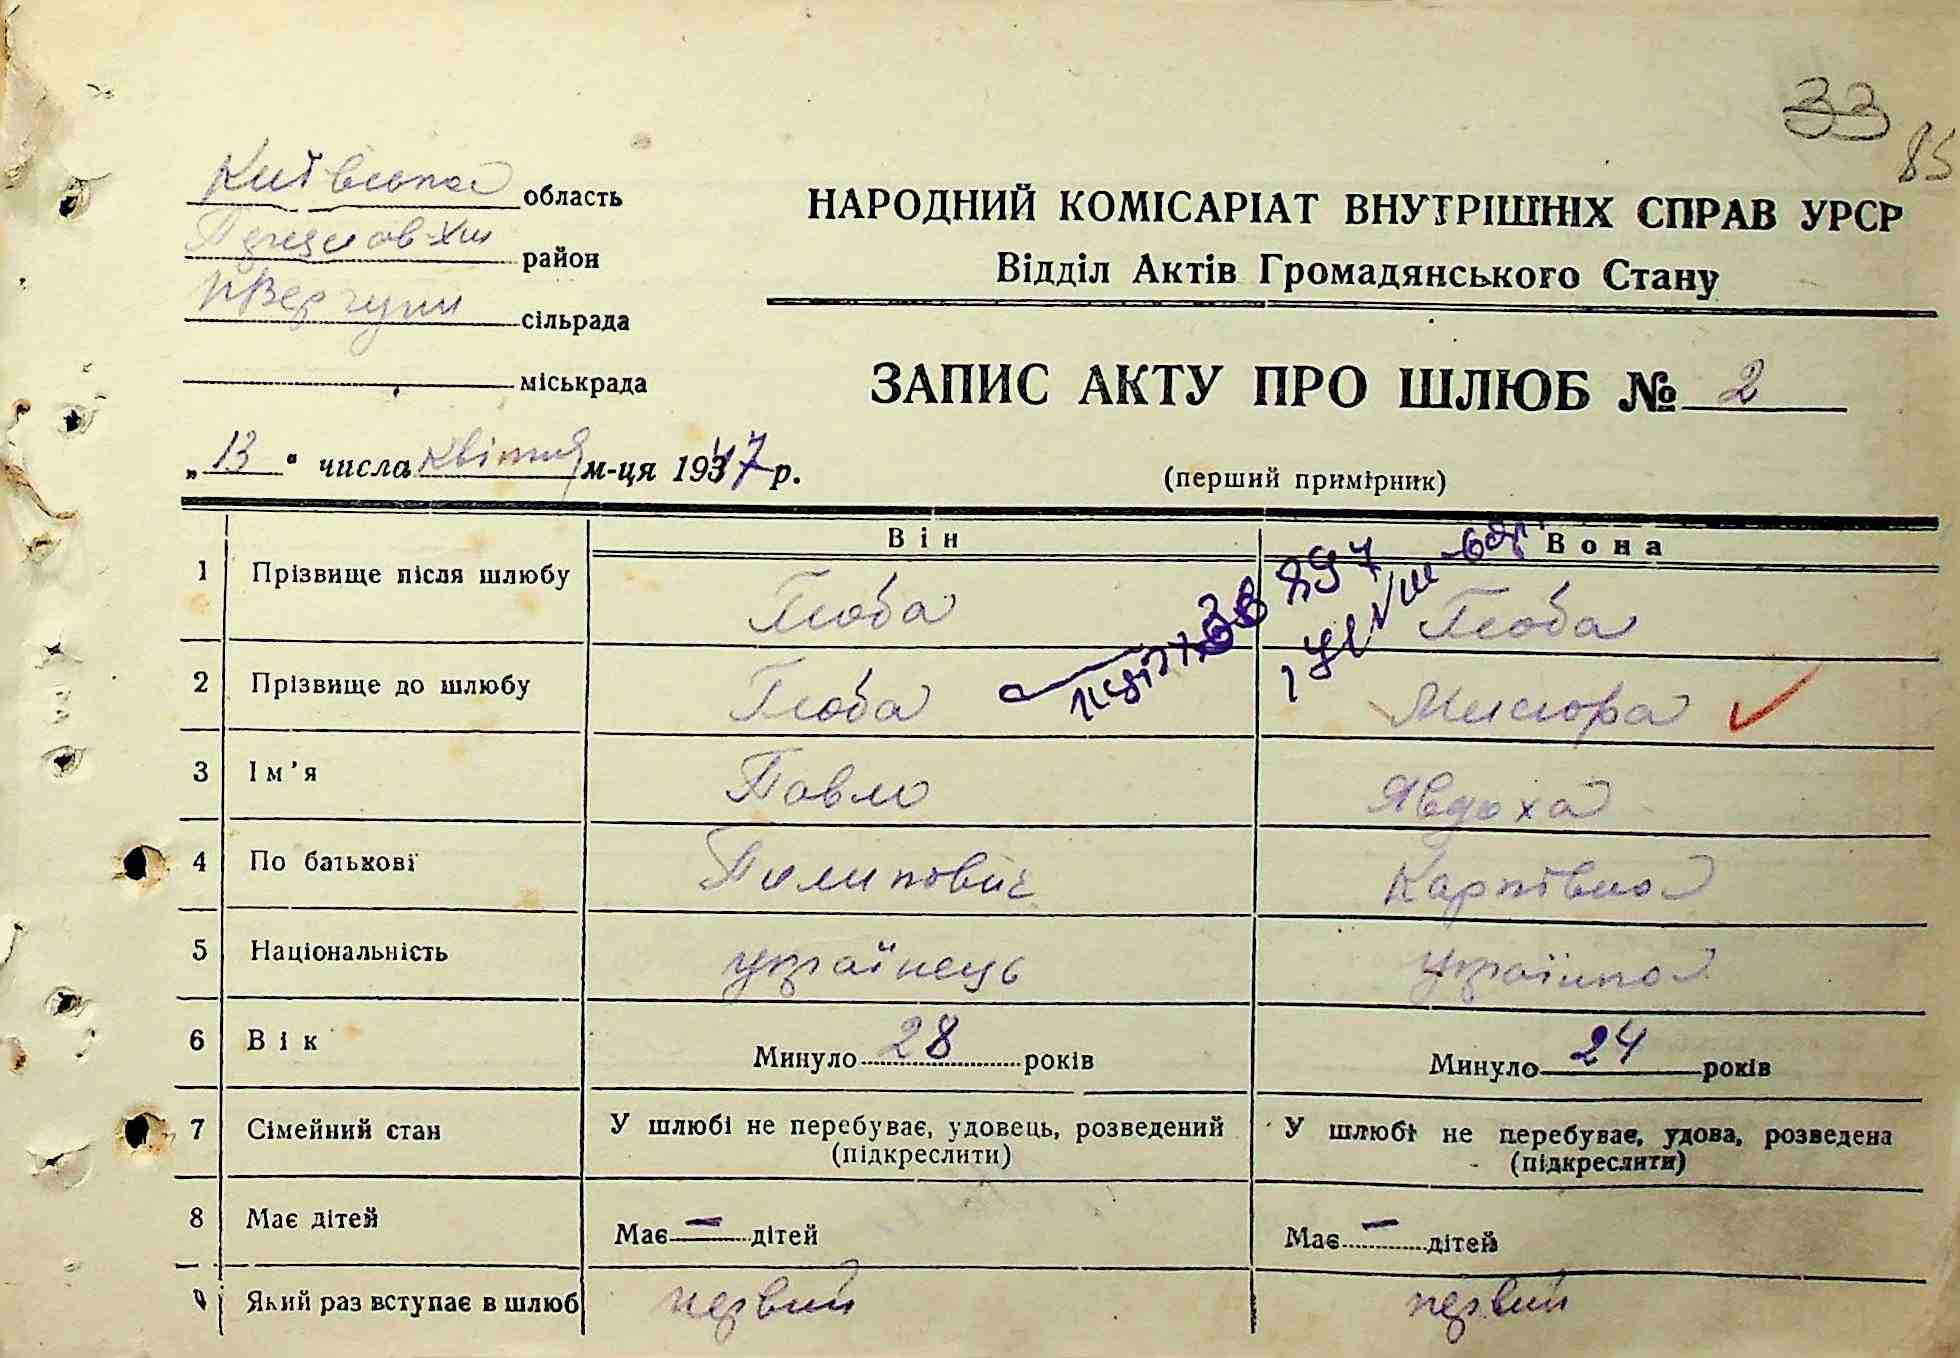 33
85
Київська область
район
сільрада
міськрада
НАРОДНИЙ КОМІСАРІАТ ВНУТРІШНІХ СПРАВ УРСР
Відділ Актів Громадянського Стану
ЗАПИС АКТУ ПРО ШЛЮБ № 2
„13“ числа квітня м-ця 1947 р.
(перший примірник)
Він Вона
1 Прізвище після шлюбу Глоба Глоба
2 Прізвище до шлюбу Глоба Мисюра
3 Ім’я Павло Явдоха
4 По батькові Пилипович Карпівна
5 Національність українець українка
6 Вік Минуло 28 років Минуло 24 років
7 Сімейний стан У шлюбі не перебуває, удовець, розведений (підкреслити) У шлюбі не перебуває, удова, розведена (підкреслити)
8 Має дітей Має — дітей Має — дітей
9 Який раз вступає в шлюб первий первий